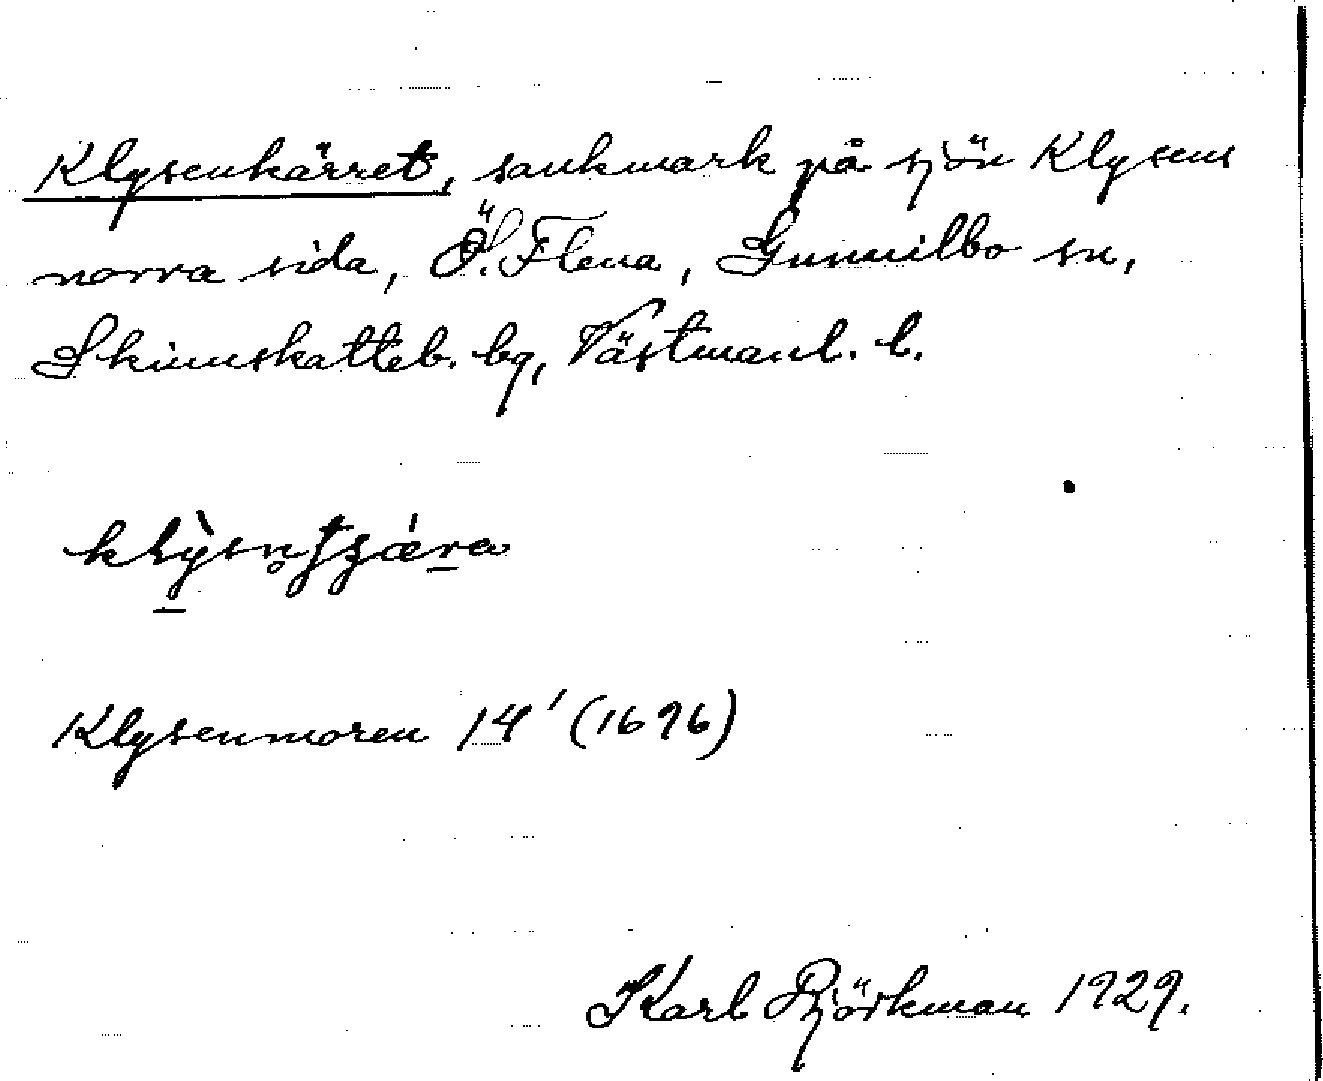 Klysenkärret, sankmark på sjön Klysens
norra sida, Ö. Flena, Gunnilbo sn,
Skinnskatteb. bg, Västmanl. l.
Klysenmoren 14' (1696)
Karl Björkman 1929.